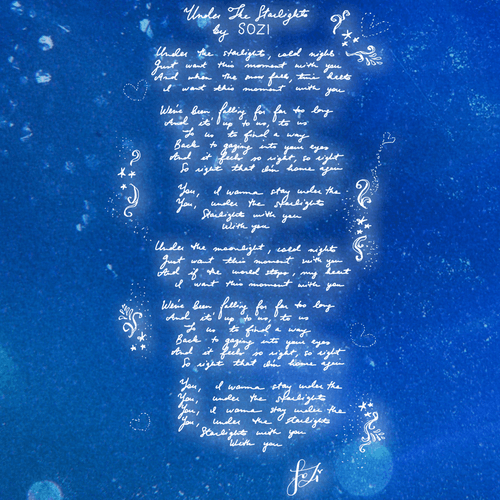 Under The Starlights
by SOZI
Under the starlights, cold nights
Just want this moment with you
And when the snow falls, time
I want this moment with you
We've been falling for far too long
And it's up to us, to us
To us to find a way
Back to gazing into your eyes
And it feels so right, so right
So right that I'm home again
You, I wanna stay under the
You, under the starlights
Starlights with you
With you
Under the moonlight, cold nights
Just want this moment with you
And if the world stops, my heart
I want this moment with you
We've been falling for far too long
And it's up to us, to us
To us to find a way
Back to gazing into your eyes
And it feels so right, so right
So right that I'm home again
You, I wanna stay under the
You, under the starlights
You, I wanna stay under the
You, under the starlights
Starlights with you
With you
Sozi